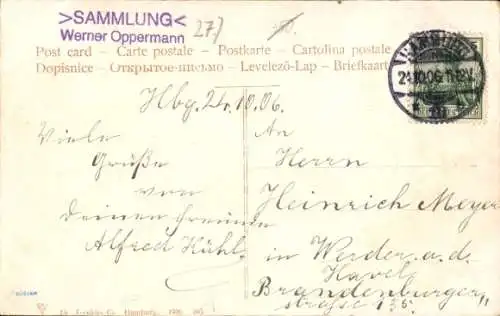 >SAMMLUNG<
Werner Oppermann
277
Post card - Carte postale - Postkarte - Cartolina postale
Dopisnice - Открытое-письмо - Levelező-Lap - Briefkaart
HAMBURG
24.10.06. 11-12V.
Hbg. 24.10.06.
Viele
Grüße
von
deinem Freunde
Alfred Kühl
An
Herrn
Heinrich Meyer
in Werder a. d.
Havel
Brandenburger
strasse 135.
Hamburg, 1906